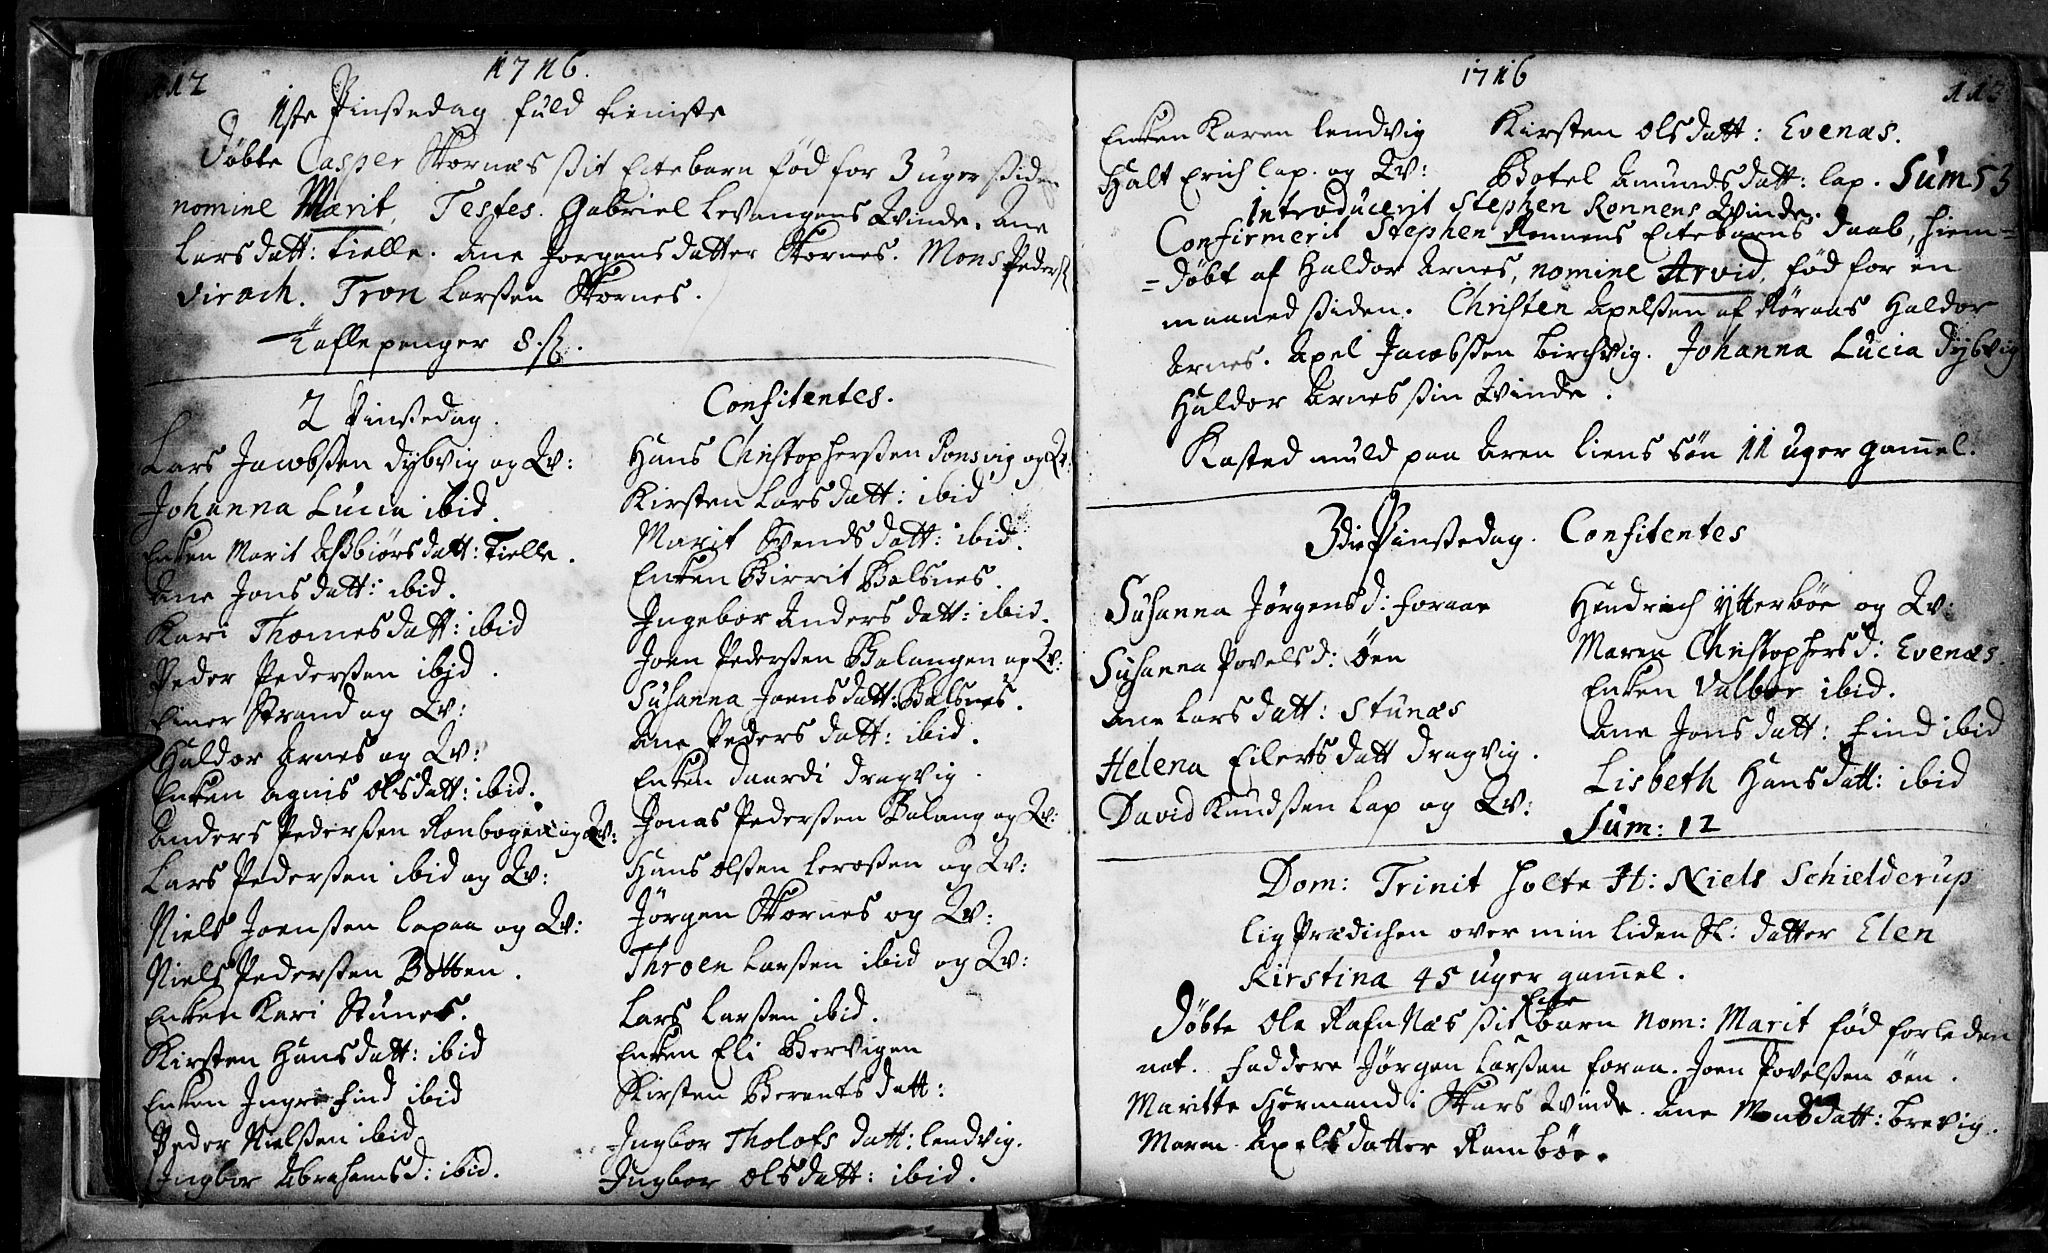 112
1716.
1ste Pinsedag fuld tieniste
Døbte Casper Skornæs sit Ectebarn fød for 3 uger siden
nomine Marit, Testes. Gabriel Levangens Qvinde. Ane
Larsdatt: Tielle. Ane Jørgensdatter Skornes. Mons Peders
Virach. Tron Larssen Skornes.
Tafle penger 8 s.
2 Pinsedag.
Confitentes.
Lars Jacobssen Dybvig og Qv:
Johanna Lucia ibid.
Encken Marit Asbiørsdatt: Tielle.
Ane Jonsdatt: ibid.
Kari Thomesdatt: ibid
Peder Pederssen ibid.
Einer Strand og Qv:
Haldor Arnes og Qv:
Encken Agnis Olsdatt: ibid.
Anders Pederssen Ronbogen og Qv:
Lars Pederssen ibid og Qv:
Niels Joenssen Lapaa og Qv:
Niels Pederssen Botten.
Encken Kari Stunes.
Kirsten Hansdatt: ibid
Encken Ingri Find ibid
Peder Nielssen ibid
Ingbor Abrahamsd: ibid.
Hans Christopherssen Ponsvig og Qv:
Kirsten Larsdatt: ibid
Marit Svendsdatt: ibid.
Encken Birrit Balsnes.
Ingebor Andersdatt: ibid.
Joen Pederssen Balangen og Qv:
Susanna Joensdatt: Balsnes.
Ane Pedersdatt: ibid.
Encken Daardi Dragvig.
Jonas Pederssen Balang og Qv:
Hans Olssen Lerossen og Qv:
Jørgen Skornes og Qv:
Throen Larssen ibid og Qv:
Lars Larssen ibid.
Encken Eli Bervigen
Kirsten Berentsdatt:
Ingbor Tholofsdatt: Lendvig.
Ingbor Olsdatt: ibid.
1716
113
Encken Karen Lendvig Kirsten Olsdatt: Evenæs.
Halt Erich Lap. og Qv: Botel Amundsdatt: Lap. Sum 53
Introducerit Stephen Ronnens Qvinde.
Confirmerit Stephen Ronnens Ectebarns Daab, hiem=
=døbt af Haldor Arnes, nomine Arvid, fød for en
maaned siden. Christen Axelssen af Røraas Haldor
Arnes. Axel Jacobssen Birchvig. Johanna Lucia Dybvig
Haldor Arnes sin Qvinde.
Kasted muld paa Aren Liens søn 11 uger gamel.
3die Pinsedag. Confitentes
Susanna Jørgensd: Foraae
Susanna Povelsd: Øen
Ane Larsdatt: Stunæs
Helena Eilertsdatt Dragvig.
David Knudssen Lap og Qv:
Hendrich Ytterbøe og Qv:
Maren Christophersd: Evenæs.
Encken Valbor ibid.
Ane Jonsdatt: Find ibid
Lisbeth Hansdatt: ibid
Sum: 12
Dom: Trinit holte H: Niels Schielderup
Lig Prædichen over min liden Sl: datter Elen
Kirstina 45 uger gamel.
Døbte Ole Rafnnæs sit Ecte barn nom: Marit fød forleden
nat. Faddere Jørgen Larssen Foraa. Joen Povelssen Øen.
Maritte Hermand i Skars Qvinde. Ane Monsdatt: Brevig.
Maren Axelsdatter Rambøe.